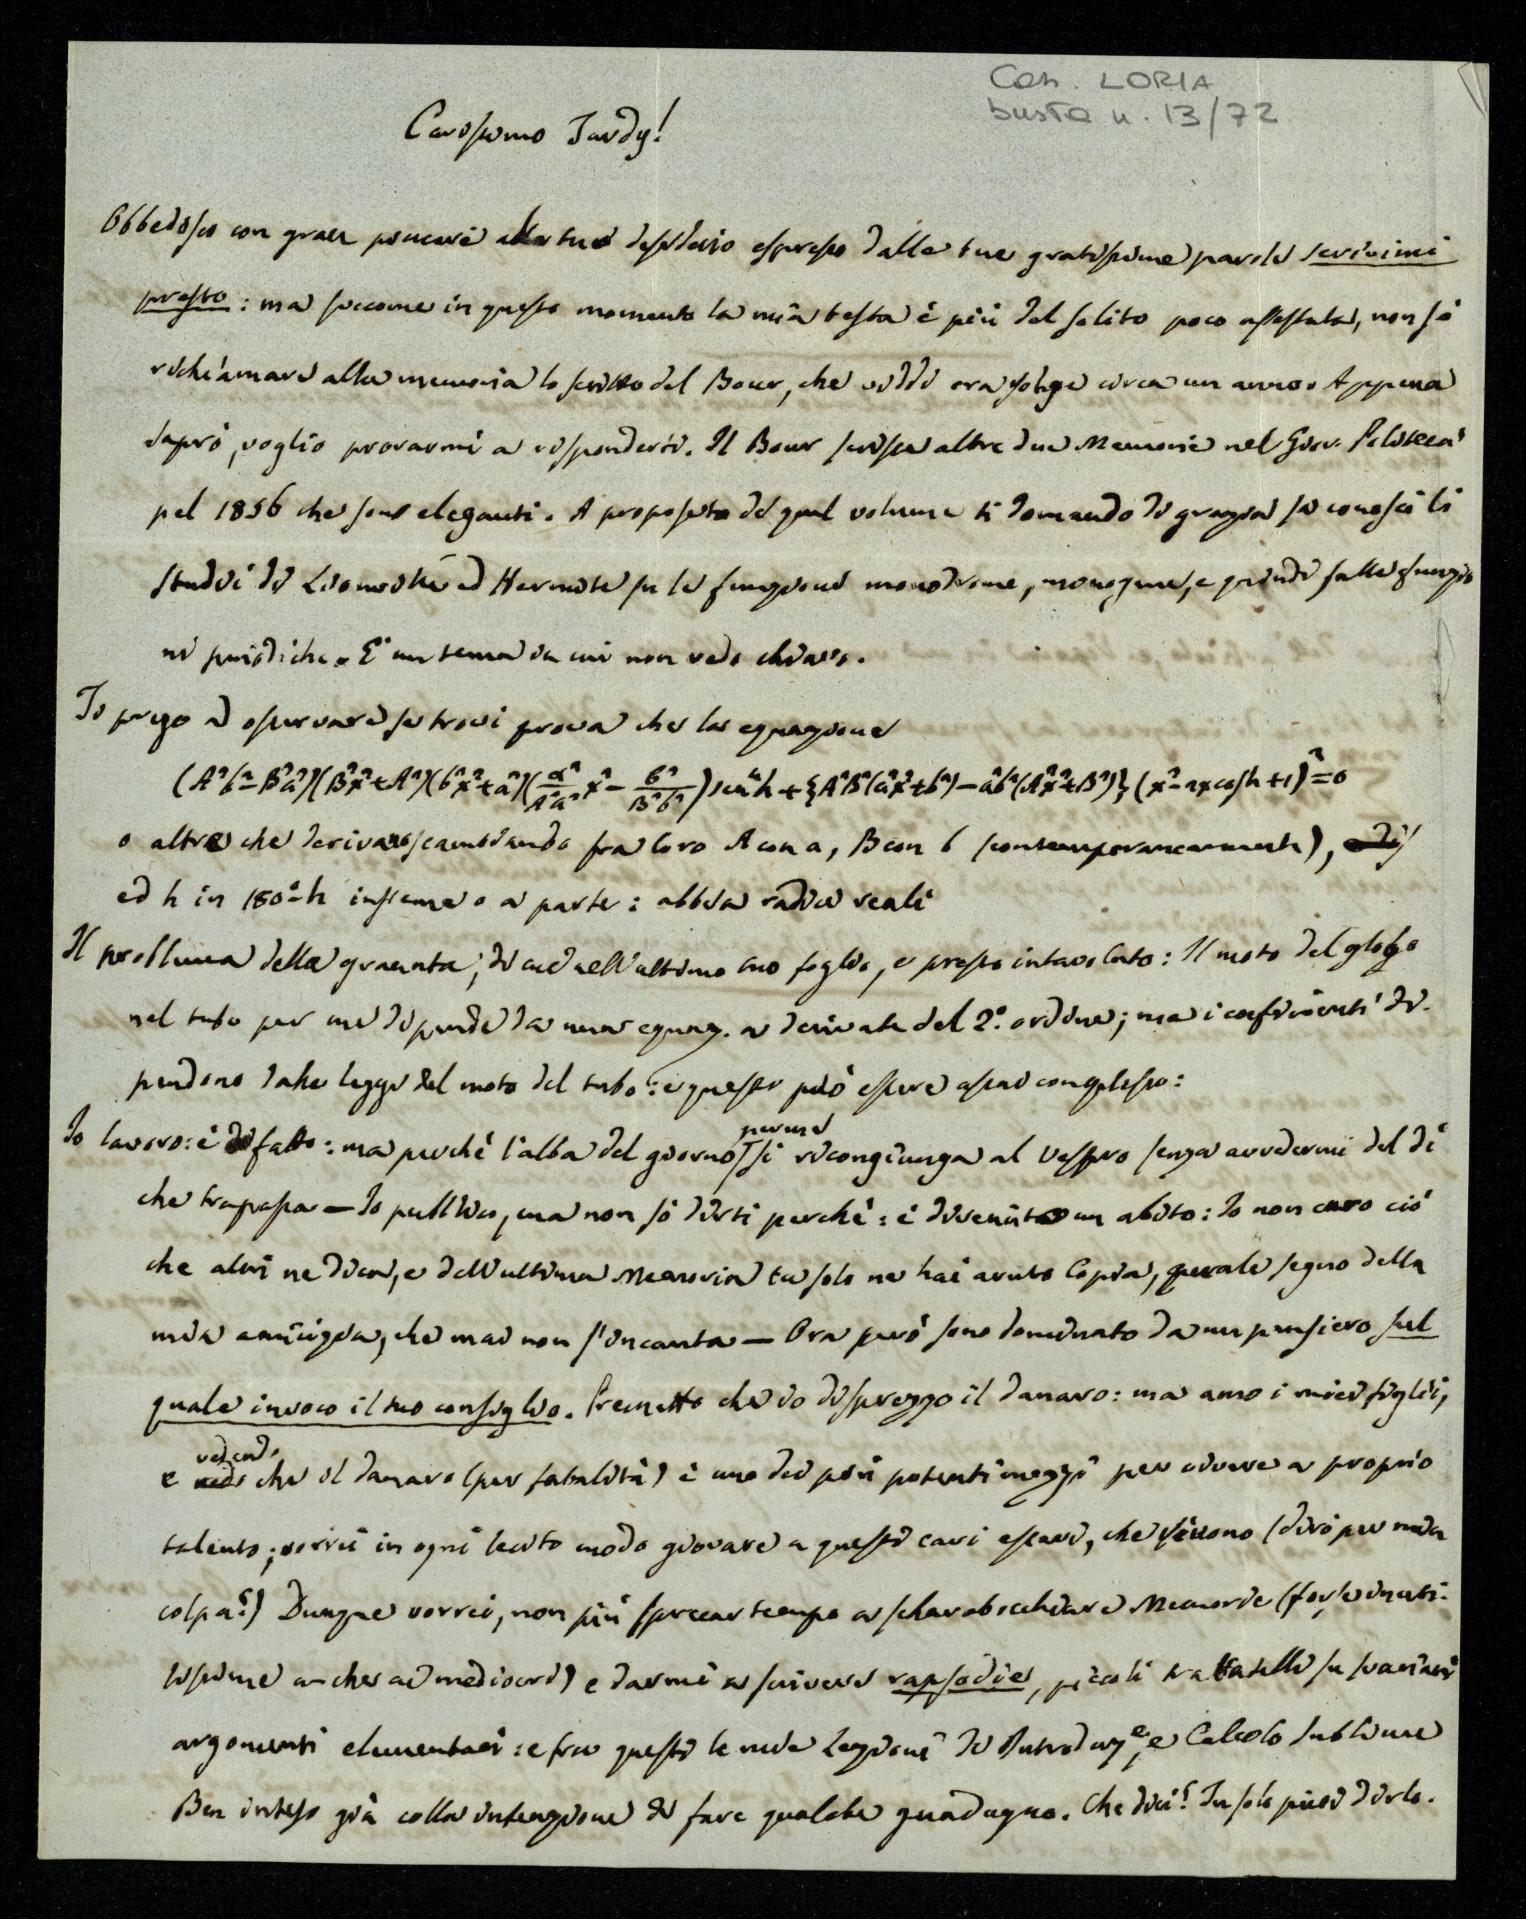 Cas. LORIA
busta n. 13/72
Carissimo Tardy!
Obbedisco con gran piacere al tuo desiderio espresso dalle tue gratissime parole scrivimi
presto: ma siccome in questo momento la mia testa è più del solito poco assestata, non so
richiamare alla memoria lo scritto del Bour, che viddi ora volge circa un anno. Appena
saprò, voglio provarmi a risponderti. Il Bour scrisse altre due Memorie nel Gior.
pel 1856 che sono eleganti. A proposito del qual volume ti domando di grazia se conosci li
studii di Liouville ed Hermite su le funzioni monodrome, monogene, e quindi sulle funzio
ni periodiche. È un tema in cui non vedo chiaro.
Ti prego ad osservare se trovi prova che la equazione
(A²b²-B²a²)(B²x²+A²)(b²x²+a²)(α²/A²a² x² - β²/B²b²) sen⁴h + {A²B²(a²x²+b²) - a²b²(A²x²+B²)}(x²-2x cosh+1)²=0
o altre che derivano scambiando fra loro A con a, B con b (contemporaneamente),
ed h in 180°-h insieme o a parte: abbia radici reali
Il problema della granata, di cui nell'ultimo tuo foglio, e presto intavolato: Il moto del globo
nel tubo per me dipende da una equaz. a derivate del 2.° ordine; ma i coefficienti di-
pendono dalla legge del moto del tubo: e questo può essere assai complesso:
Io lavoro: è di fatto: ma perchè l'alba del giorno per me si ricongiunga al vespro senza avvedermi del dì
che trapassa — Io pubblico, ma non so dirti perchè: è divenuto un abito: Io non curo ciò
che altri ne dica, e dell'ultima Memoria tu solo ne hai avuto Copia, quale segno della
mia amicizia, che mai non s'incanta — Ora però sono dominato da un pensiero sul
quale invoco il tuo consiglio. Premetto che io disprezzo il danaro: ma amo i miei figli,
e vedendo che il danaro (per fatalità) è uno dei più potenti mezzi per vivere a proprio
talento; vorrei in ogni lecito modo giovare a questi cari esseri, che vivono (dirò per mia
colpa?) Dunque vorrei, non più sprecar tempo a scharabocchiare Memorie (forse inuti-
lissime anche ai mediocri) e darmi a scrivere rapsodie, piccoli trattatelli su svariati
argomenti elementari: e fra questi le mie Lezioni di Introduz.e, e Calcolo Sublime
Ben inteso già colla intenzione di fare qualche guadagno. Che dici? Tu solo puoi dirlo.